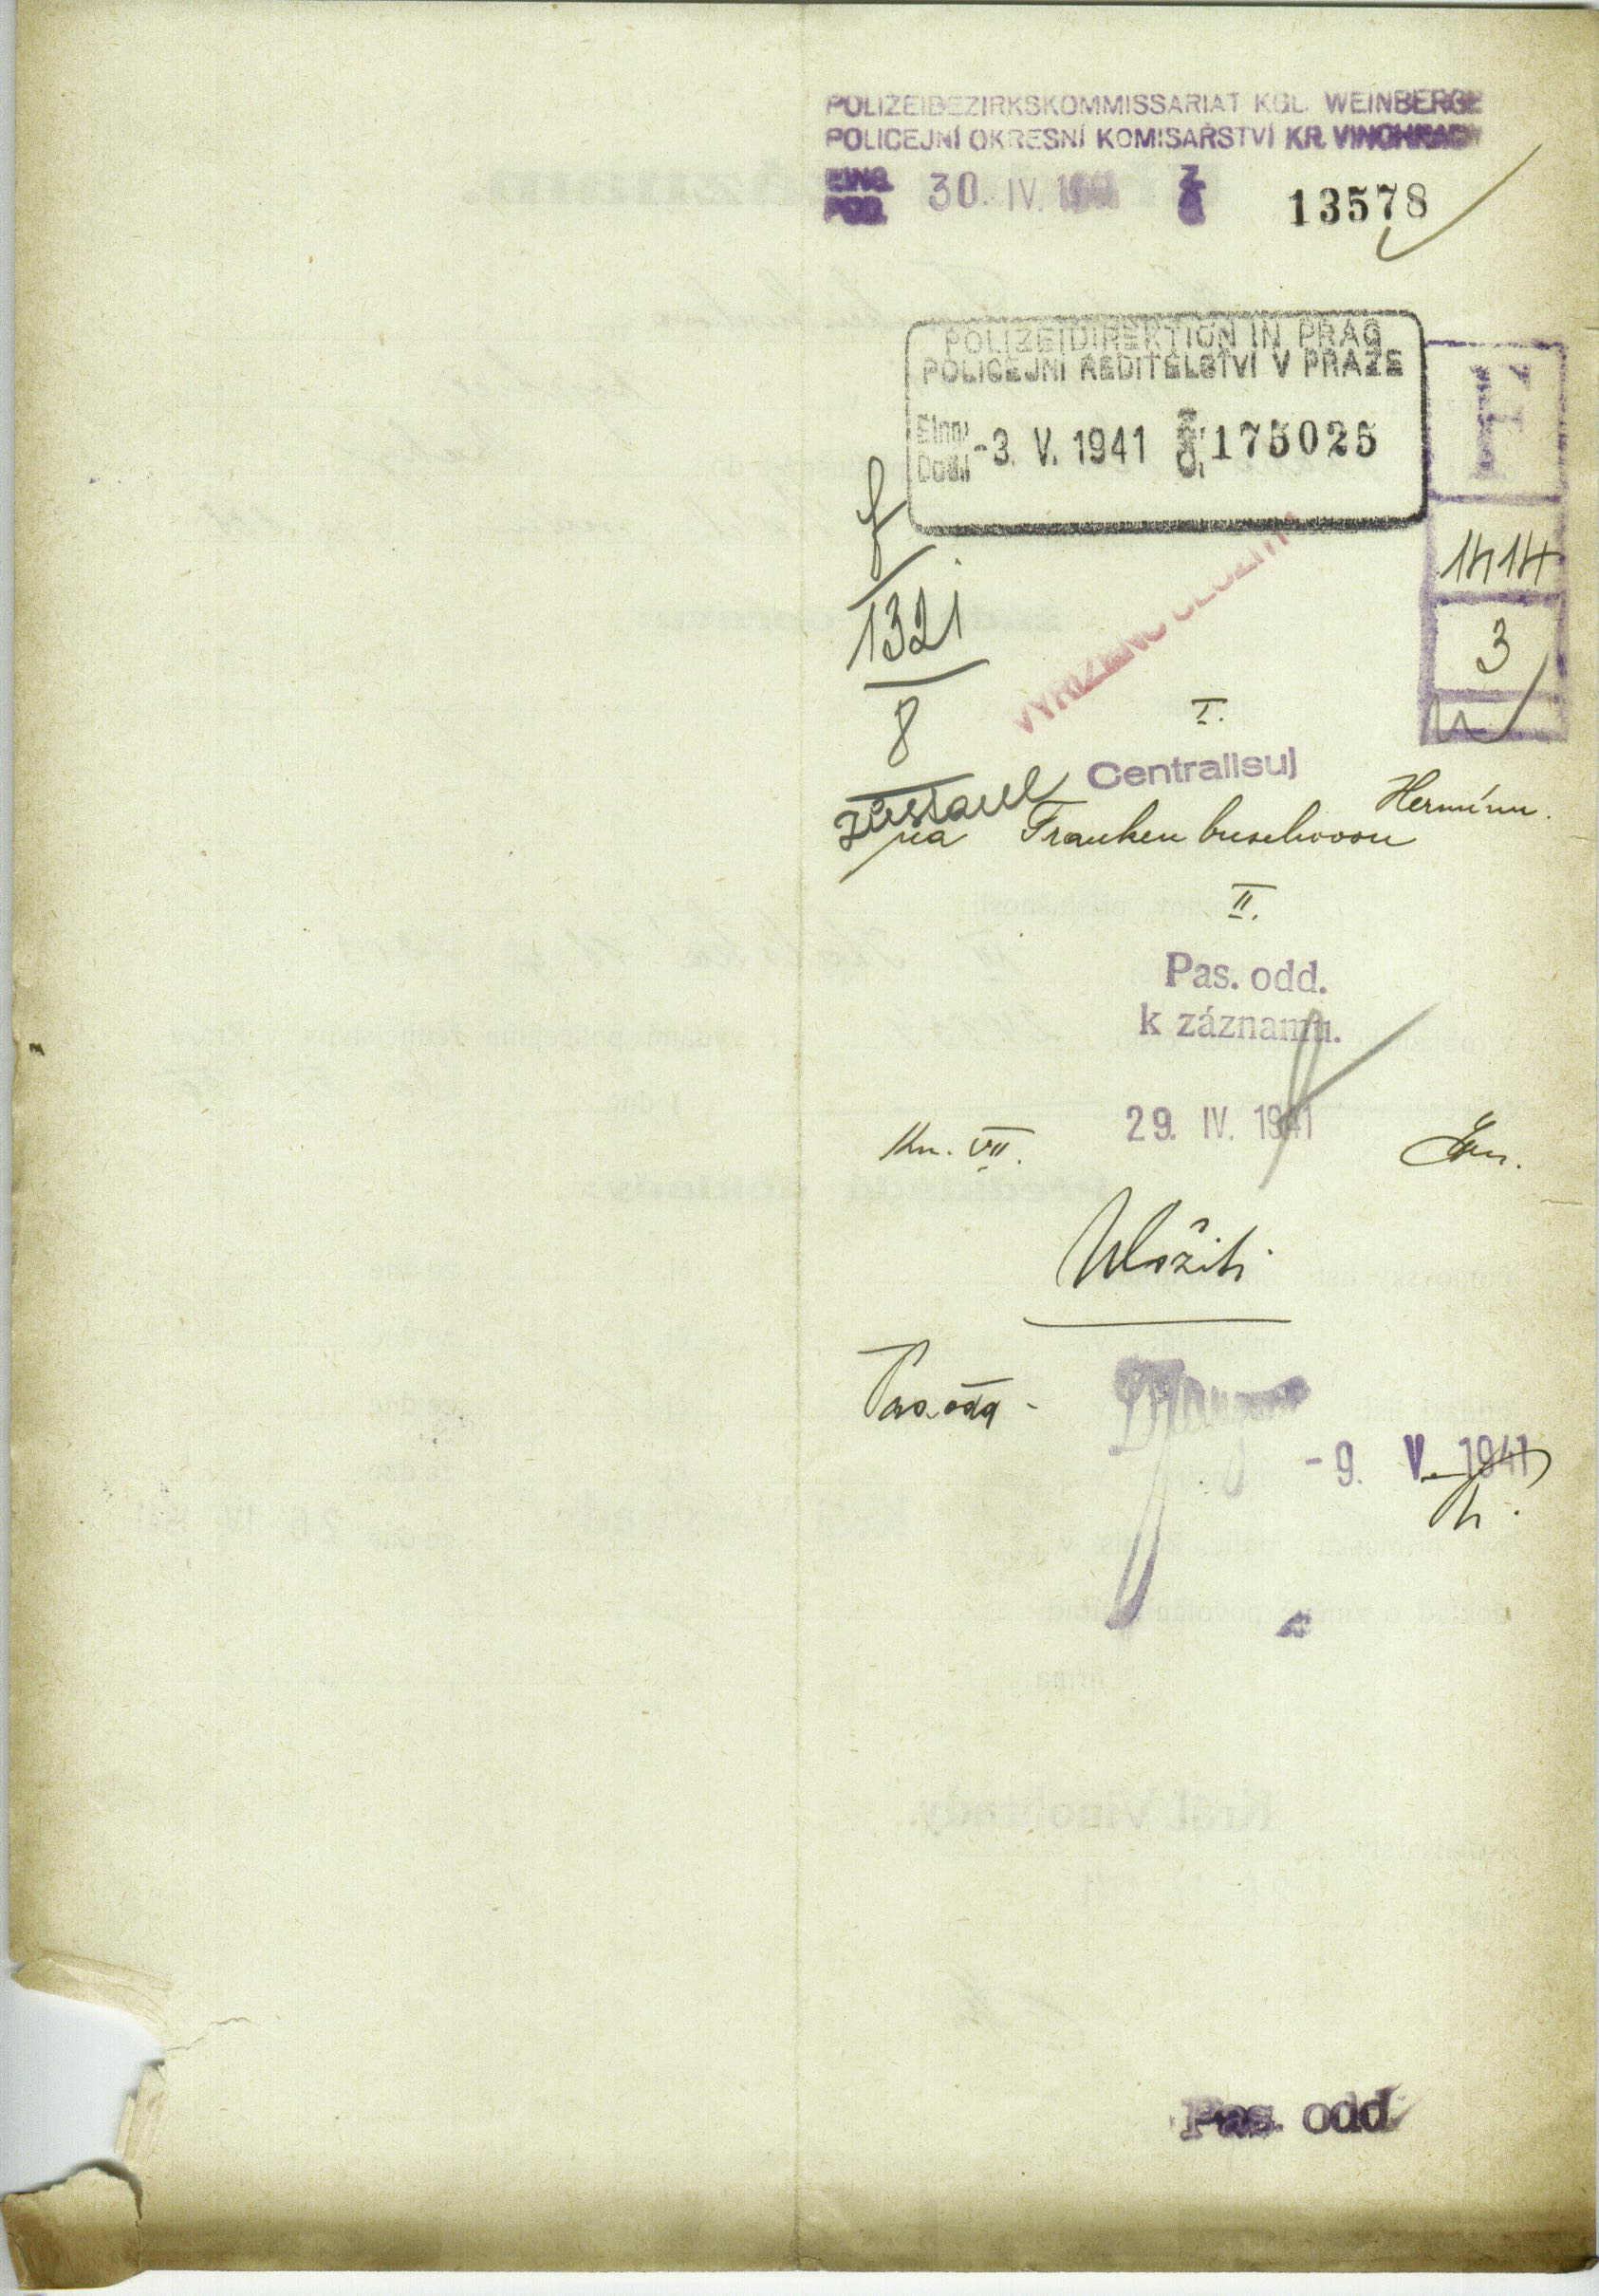 POLIZEIBEZIRKSKOMMISSARIAT KGL. WEINBERGE
POLICEJNÍ OKRESNÍ KOMISAŘSTVÍ KR. VINOHRADY
EING. POD. 30. IV. 1941 13578
POLIZEIDIREKTION IN PRAG
POLICEJNÍ ŘEDITELSTVÍ V PRAZE
Eing. Došlo -3. V. 1941 175025
F
1414
3
f
1321
8
VYŘÍZENO ULOŽITI
I.
Centralisuj
zůstane
na Frankenbuschovou Hermínu.
II.
Pas. odd.
k záznamu.
29. IV. 1941
Kn. VII.
Uložiti
Pas. odd.
-9. V. 1941
Pas. odd.